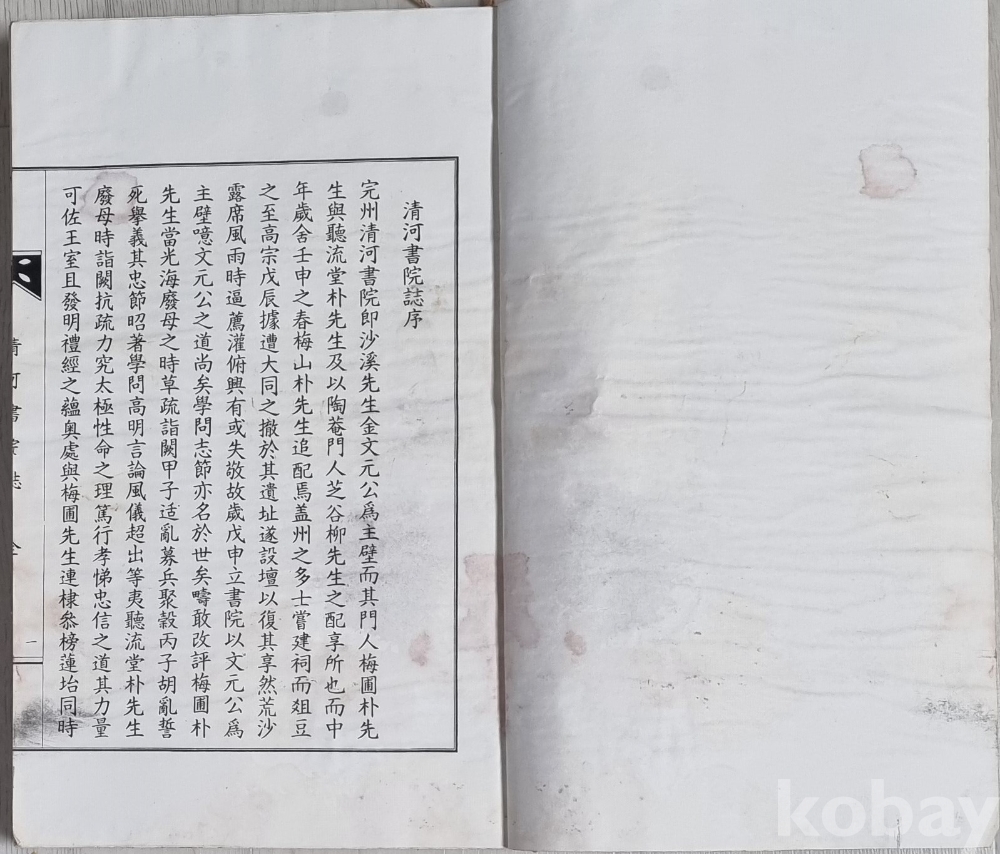 清河書院誌序
完州清河書院卽沙溪先生金文元公爲主壁而其門人梅圃朴先
生與聽流堂朴先生及以陶菴門人芝谷柳先生之配享所也而中
年歲舍壬申之春梅山朴先生追配焉盖州之多士嘗建祠而俎豆
之至高宗戊辰據遭大同之撤於其遺址遂設壇以復其享然荒沙
露席風雨時逼薦灌俯興有或失敬故歲戊申立書院以文元公爲
主壁噫文元公之道尚矣學問志節亦名於世矣疇敢改評梅圃朴
先生當光海廢母之時草疏詣闕甲子适亂募兵聚穀丙子胡亂誓
死擧義其忠節昭著學問高明言論風儀超出等夷聽流堂朴先生
廢母時詣闕抗疏力究太極性命之理篤行孝悌忠信之道其力量
可佐王室且發明禮經之蘊奧處與梅圃先生連棣叅榜蓮坮同時
清河書院誌 全
一
kobay